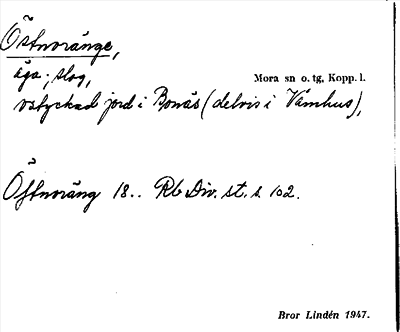 Östnoränge,
äga; slog,
Mora sn o. tg, Kopp. l.
ostyckad jord i Bonäs (delvis i Våmhus),
Öftnoräng 18.. Rb Div. st. s. 102.
Bror Lindén 1947.